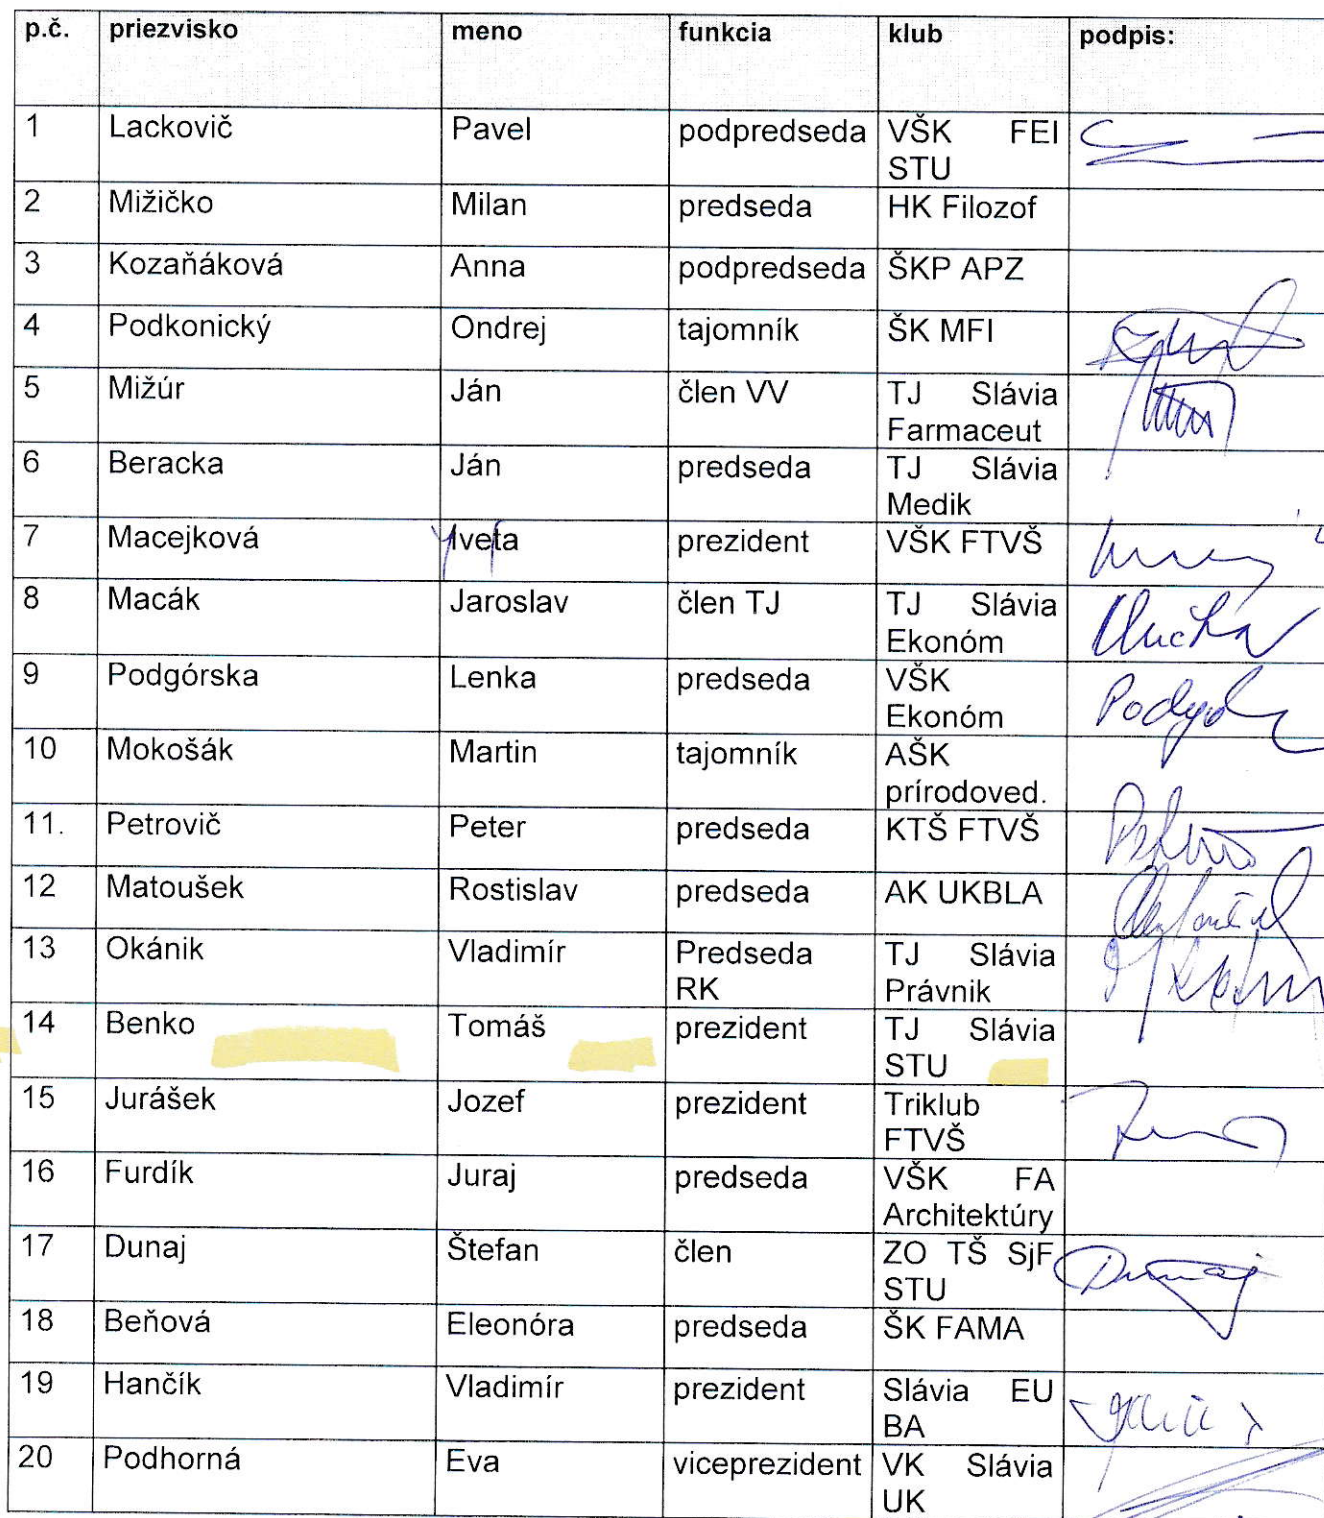 p.č. priezvisko meno funkcia klub podpis:
1 Lackovič Pavel podpredseda VŠK FEI
STU
2 Mižičko Milan predseda HK Filozof
3 Kozaňáková Anna podpredseda ŠKP APZ
4 Podkonický Ondrej tajomník ŠK MFI
5 Mižúr Ján člen VV TJ Slávia
Farmaceut
6 Beracka Ján predseda TJ Slávia
Medik
7 Macejková Yveta prezident VŠK FTVŠ
8 Macák Jaroslav člen TJ TJ Slávia
Ekonóm
9 Podgórska Lenka predseda VŠK
Ekonóm
10 Mokošák Martin tajomník AŠK
prírodoved.
11. Petrovič Peter predseda KTŠ FTVŠ
12 Matoušek Rostislav predseda AK UKBLA
13 Okánik Vladimír Predseda TJ Slávia
RK Právnik
14 Benko Tomáš prezident TJ Slávia
STU
15 Jurášek Jozef prezident Triklub
FTVŠ
16 Furdík Juraj predseda VŠK FA
Architektúry
17 Dunaj Štefan člen ZO TŠ SjF Dunaj
STU
18 Beňová Eleonóra predseda ŠK FAMA
19 Hančík Vladimír prezident Slávia EU
BA
20 Podhorná Eva viceprezident VK Slávia
UK